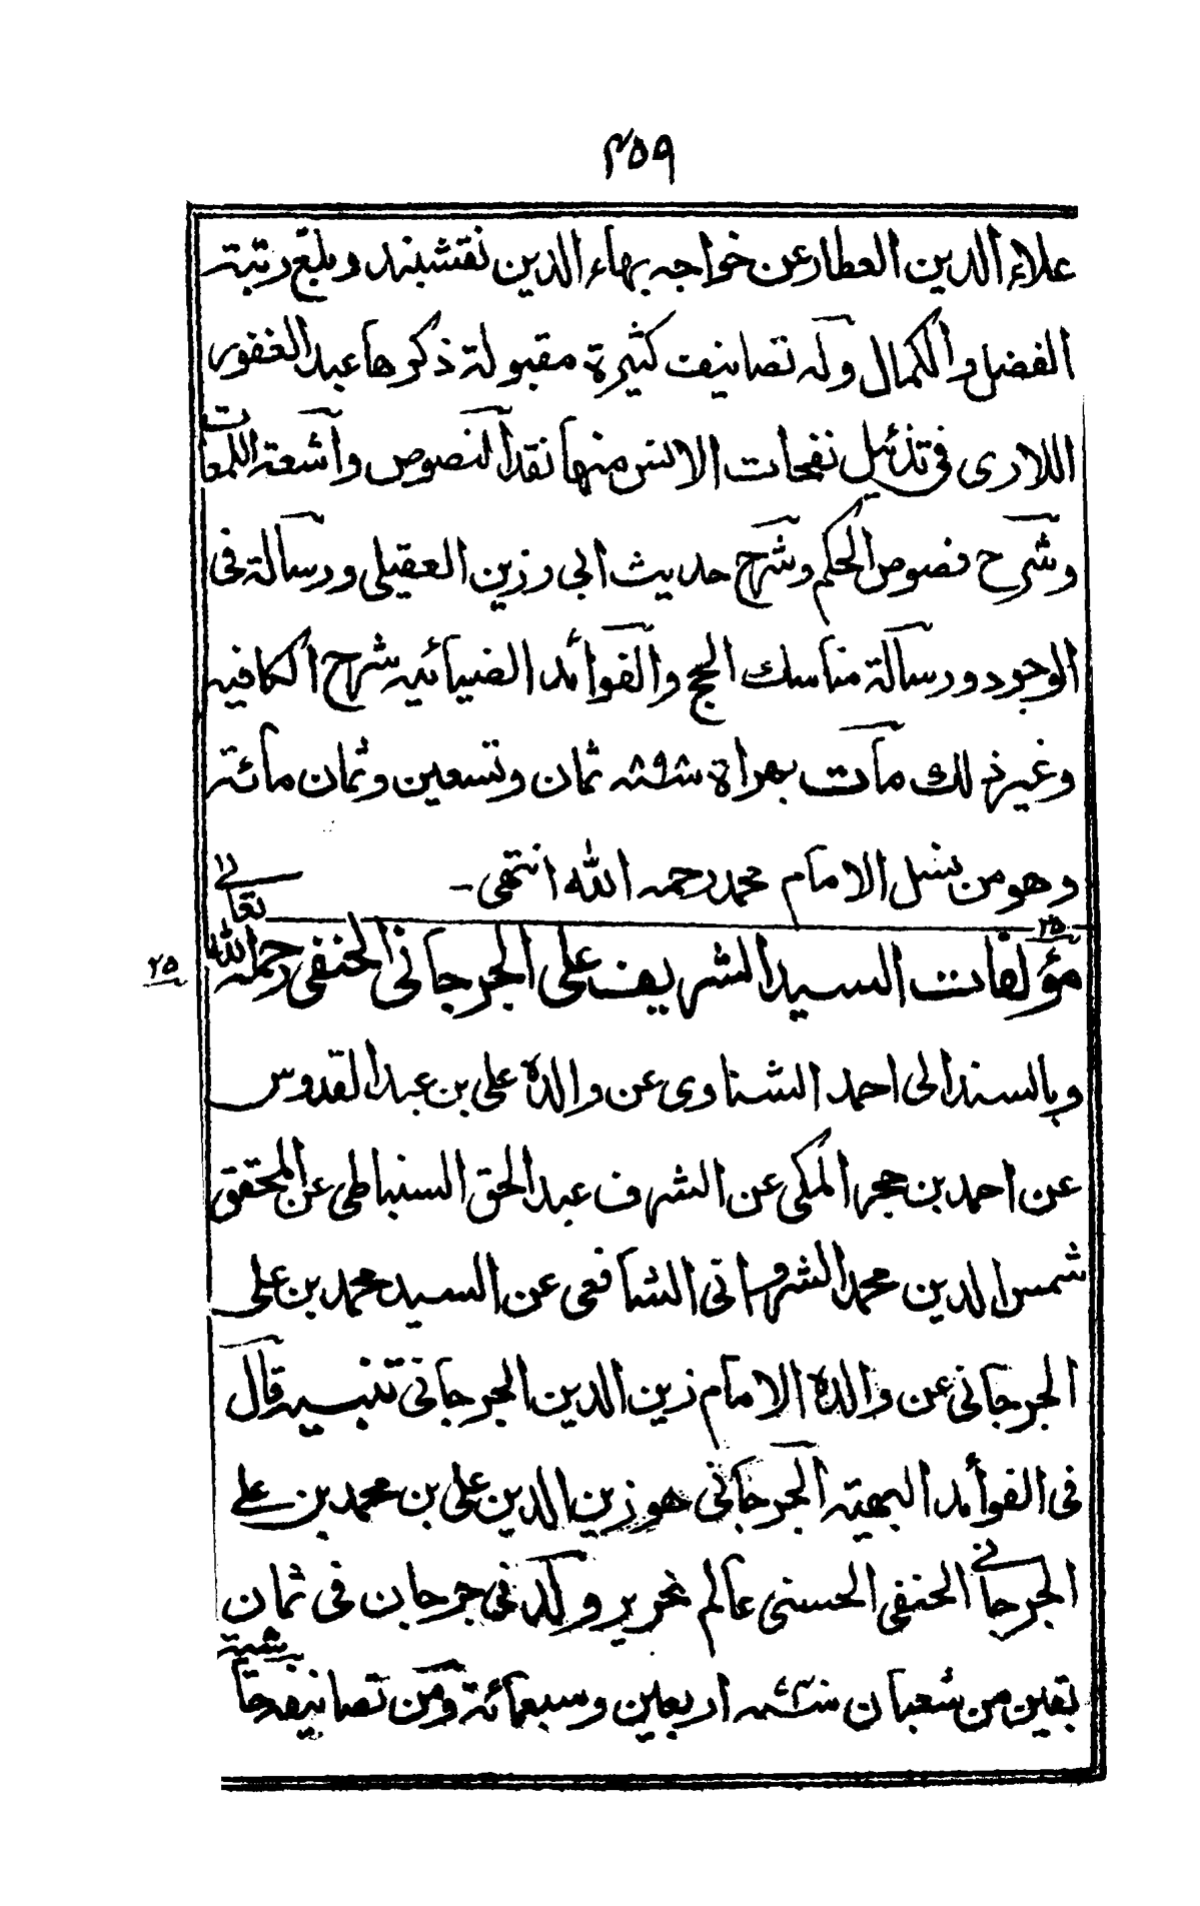 ٣٥٩
علاء الدين العطار عن خواجه بهاء الدين نقشبند وبلغ رتبته
الفضل والكمال وله تصانيف كثيرة مقبولة ذكرها عبد الغفور
اللارى فى تذئيل نفحات الانس منها نقد النصوص وأشعة اللمعات
وشرح فصوص الحكم وشرح حديث ابى رزين العقيلى ورسالة فى
الوجود ورسالة مناسك الحج والفوائد الضيائيه شرح الكافيه
وغير ذلك مات بهراة ثمان وتسعين وثمان مائة
وهو من نسل الامام محمد رحمه الله انتهى -
٢٥
مؤلفات السيد الشريف على الجرجانى الحنفى رحمه الله تعالى
٢٥
وبالسند الى احمد الشناوى عن والده على بن عبد القدوس
عن احمد بن حجر المكى عن الشرف عبد الحق السنباطى عن المحقق
شمس الدين محمد الشروانى الشافعى عن السيد محمد بن على
الجرجانى عن والده الامام زين الدين الجرجانى تنبيه قال
فى الفوائد البهيته الجرجانى هو زين الدين على بن محمد بن على
الجرجانى الحنفى الحسنى عالم نحرير ولد فى جرجان فى ثمان
بقين من شعبان اربعين وسبعمائة ومن تصانيفه حاشيته